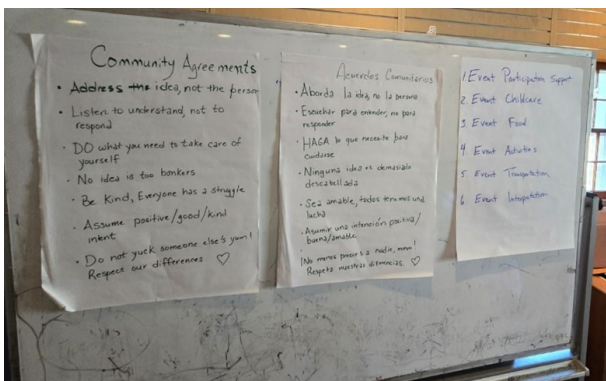 Community Agreements
• Address the idea, not the person
• Listen to understand, not to
respond
• DO what you need to take care of
yourself
• No idea is too bonkers
• Be Kind, Everyone has a struggle
• Assume positive/good/kind
intent
• Do not yuck someone else's yum!
Respect our differences ♡
Acuerdos Comunitarios
• Aborda la idea, no la persona
• Escuchar para entender, no para
responder
• HAGA lo que necesite para
cuidarse
• Ninguna idea es demasiado
descabellada
• Sea amable, todos tenemos una
lucha
• Asumir una intención positiva/
buena/amable
¡No a nadie,
Respeta nuestras diferencias ♡
1. Event Participation Support
2. Event Childcare
3. Event Food
4. Event Activities
5. Event Transportation
6. Event Interpretation